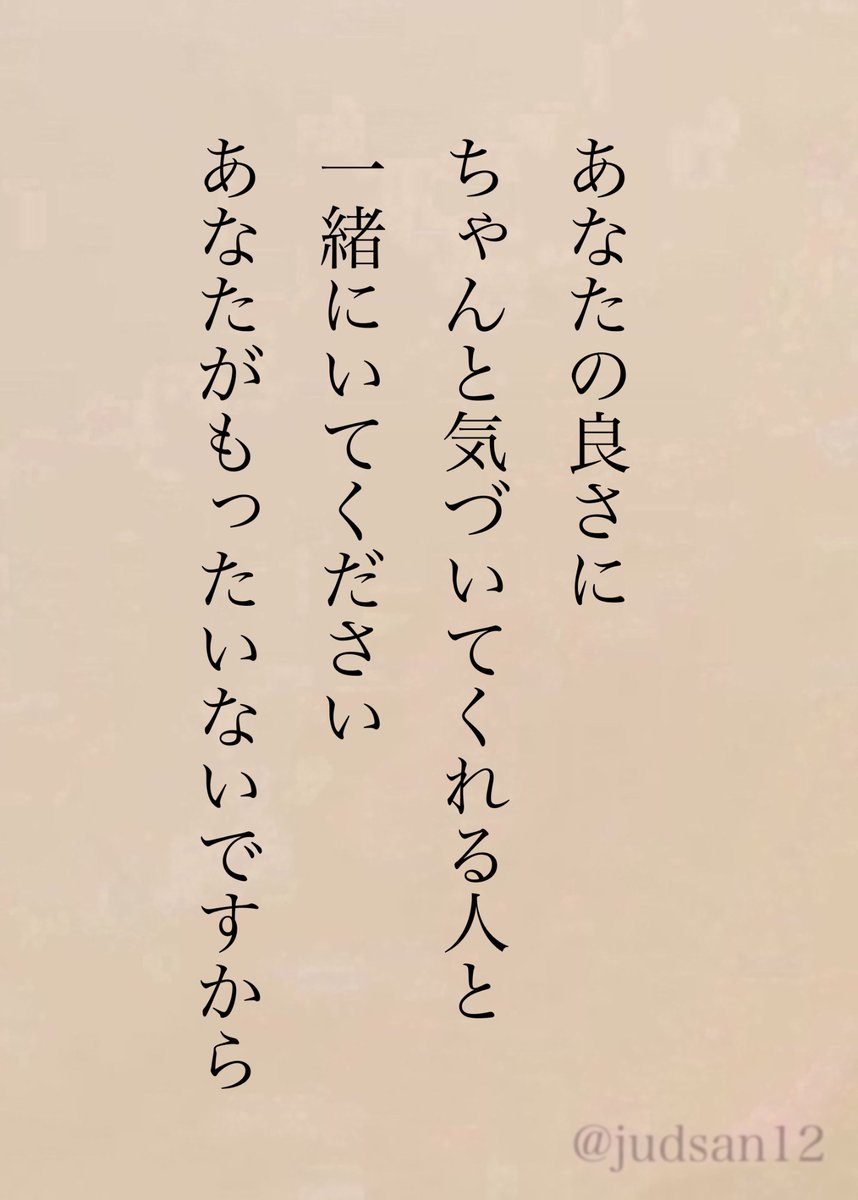 あなたの良さに
ちゃんと気づいてくれる人と
一緒にいてください
あなたがもったいないですから
@judsan12